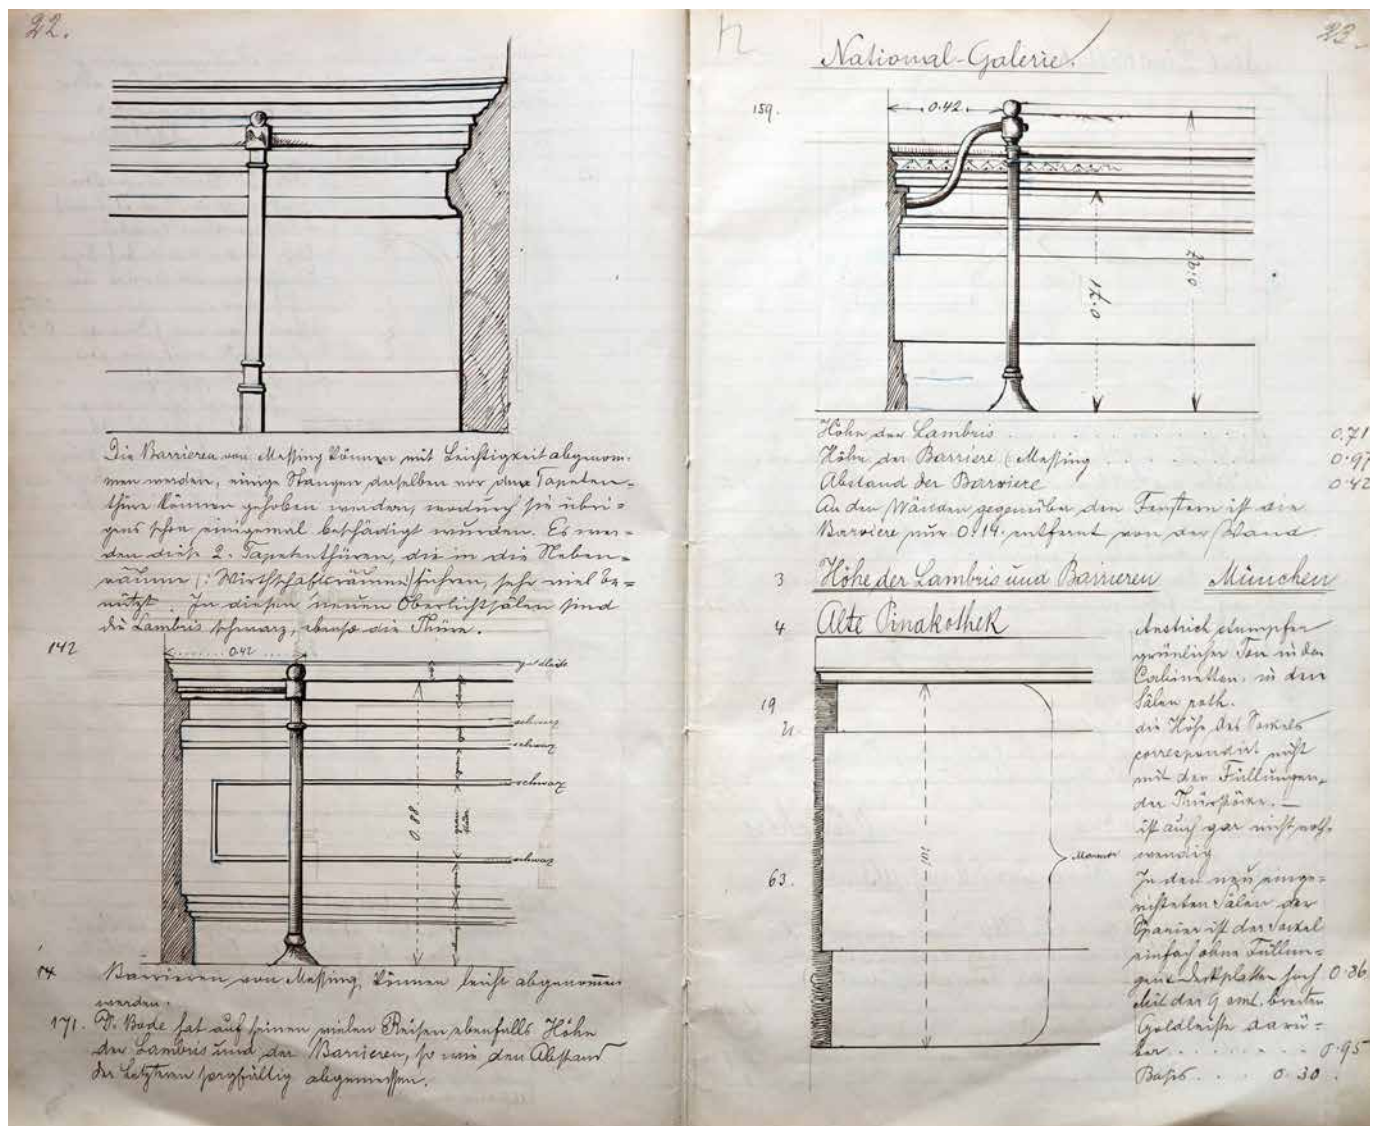 22.
Die Barrieren von Messing können mit Leichtigkeit abgenom-
men werden, einige Stangen derselben vor den Tapeten-
thüre können gehoben werden, wodurch sie übri-
gens schon einigemal beschädigt wurden. Es wer-
den diese 2. Tapetenthüren, die in die Neben-
räume (: Wirthschaftsräume) führen, sehr viel be-
nützt. In diesen neuen Oberlichtsälen sind
die Lambris schwarz, ebenso die Thüre.
142
0.42
Goldleiste
schwarz
schwarz
schwarz
schwarz
0.88
14
Barrieren von Messing, können leicht abgenommen
werden.
171. Dr. Bode hat auf seinen vielen Reisen ebenfalls Höhe
der Lambris und der Barrieren, so wie den Abstand
der Letzteren sorgfältig abgemessen.
23.
National-Galerie.
159.
0.42
0.71
0.97
Höhe der Lambris 0.71
Höhe der Barriere (Messing 0.97
Abstand der Barriere 0.42
An den Wänden gegenüber den Fenstern ist die
Barriere nur 0.14 entfernt von der Wand.
3 Höhe der Lambris und Barrieren München
4 Alte Pinakothek
19
21.
63.
Anstrich stumpfer
grünlicher Ton in den
Cabinetten, in den
Sälen roth.
die Höhe des Sockels
correspondirt nicht
mit den Füllungen
der Thürstöcke. —
ist auch gar nicht noth-
wendig
In den neu einge-
richteten Sälen der
Spanier ist der Sockel
einfach ohne Füllun-
gen Deckplatten hoch 0.86
Mit der 9 cmt. breiten
Goldleiste darü-
ber 0.95
Basis 0.30.